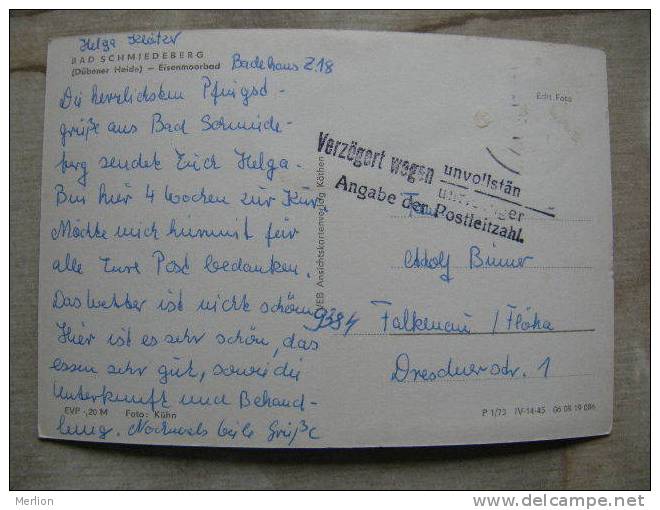 Helga Klötzer
BAD SCHMIEDEBERG
(Dübener Heide) – Eisenmoorbad
Badehaus Z.18
Die herrlichsten Pfingst-
grüße aus Bad Schmiede-
berg sendet Euch Helga.
Bin hier 4 Wochen zur Kur.
Möchte mich hiermit für
alle Eure Post bedanken.
Das Wetter ist nicht schön.
Hier ist es sehr schön, das
essen sehr gut, sowie die
Unterkunft und Behand-
lung. Nochmals viele Grüße
EVP -,20 M Foto: Kühn
VEB Ansichtskartenverlag Köthen
Edit. Foto
Verzögert wegen unvollstän
Angabe der Postleitzahl.
Fam.
Adolf Binner
9384 Falkenau / Flöha
Dresdnerstr. 1
P 1/73 IV-14-45 06 08 19 086
Merlion
http://www.delcampe.net